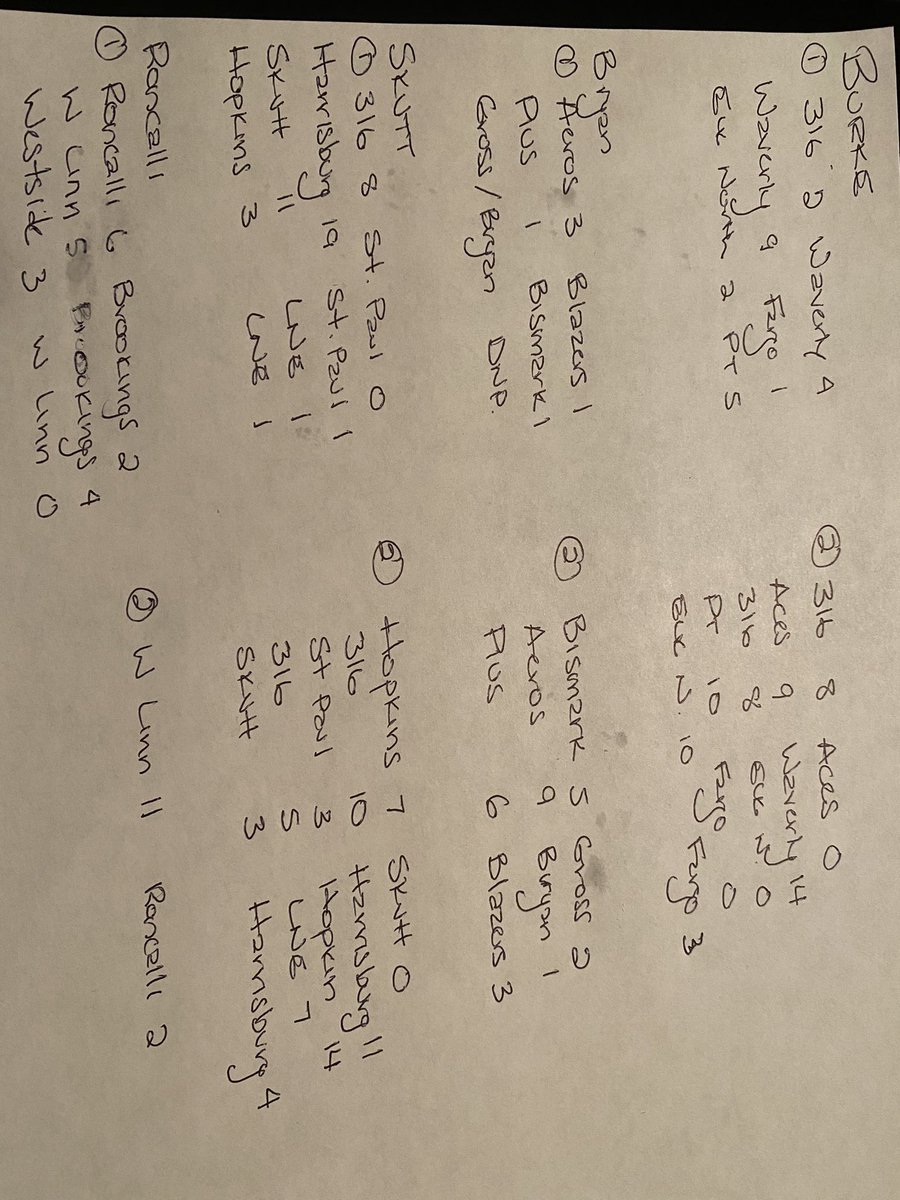 BURKE
① 316 2 Waverly 4
Waverly 9 Fargo 1
Elk North 2 PT 5
② 316 8 Aces 0
Aces 9 Waverly 14
316 8 Elk N. 0
PT 10 Fargo 0
Elk N. 10 Fargo 3
Bryan
① Aeros 3 Blazers 1
Pius 1 Bismark 1
Gross/Bryan DNP.
② Bismark 5 Gross 2
Aeros 9 Bryan 1
Pius 6 Blazers 3
SKUTT
① 316 8 St. Paul 0
Harrisburg 19 St. Paul 1
Skutt 11 LNE 1
Hopkins 3 LNE 1
② Hopkins 7 Skutt 0
316 10 Harrisburg 11
St Paul 3 Hopkin 14
316 5 LNE 7
Skutt 3 Harrisburg 4
Roncalli
① Roncalli 6 Brookings 2
W Linn 5 Brookings 4
Westside 3 W Linn 0
② W Linn 11 Roncalli 2